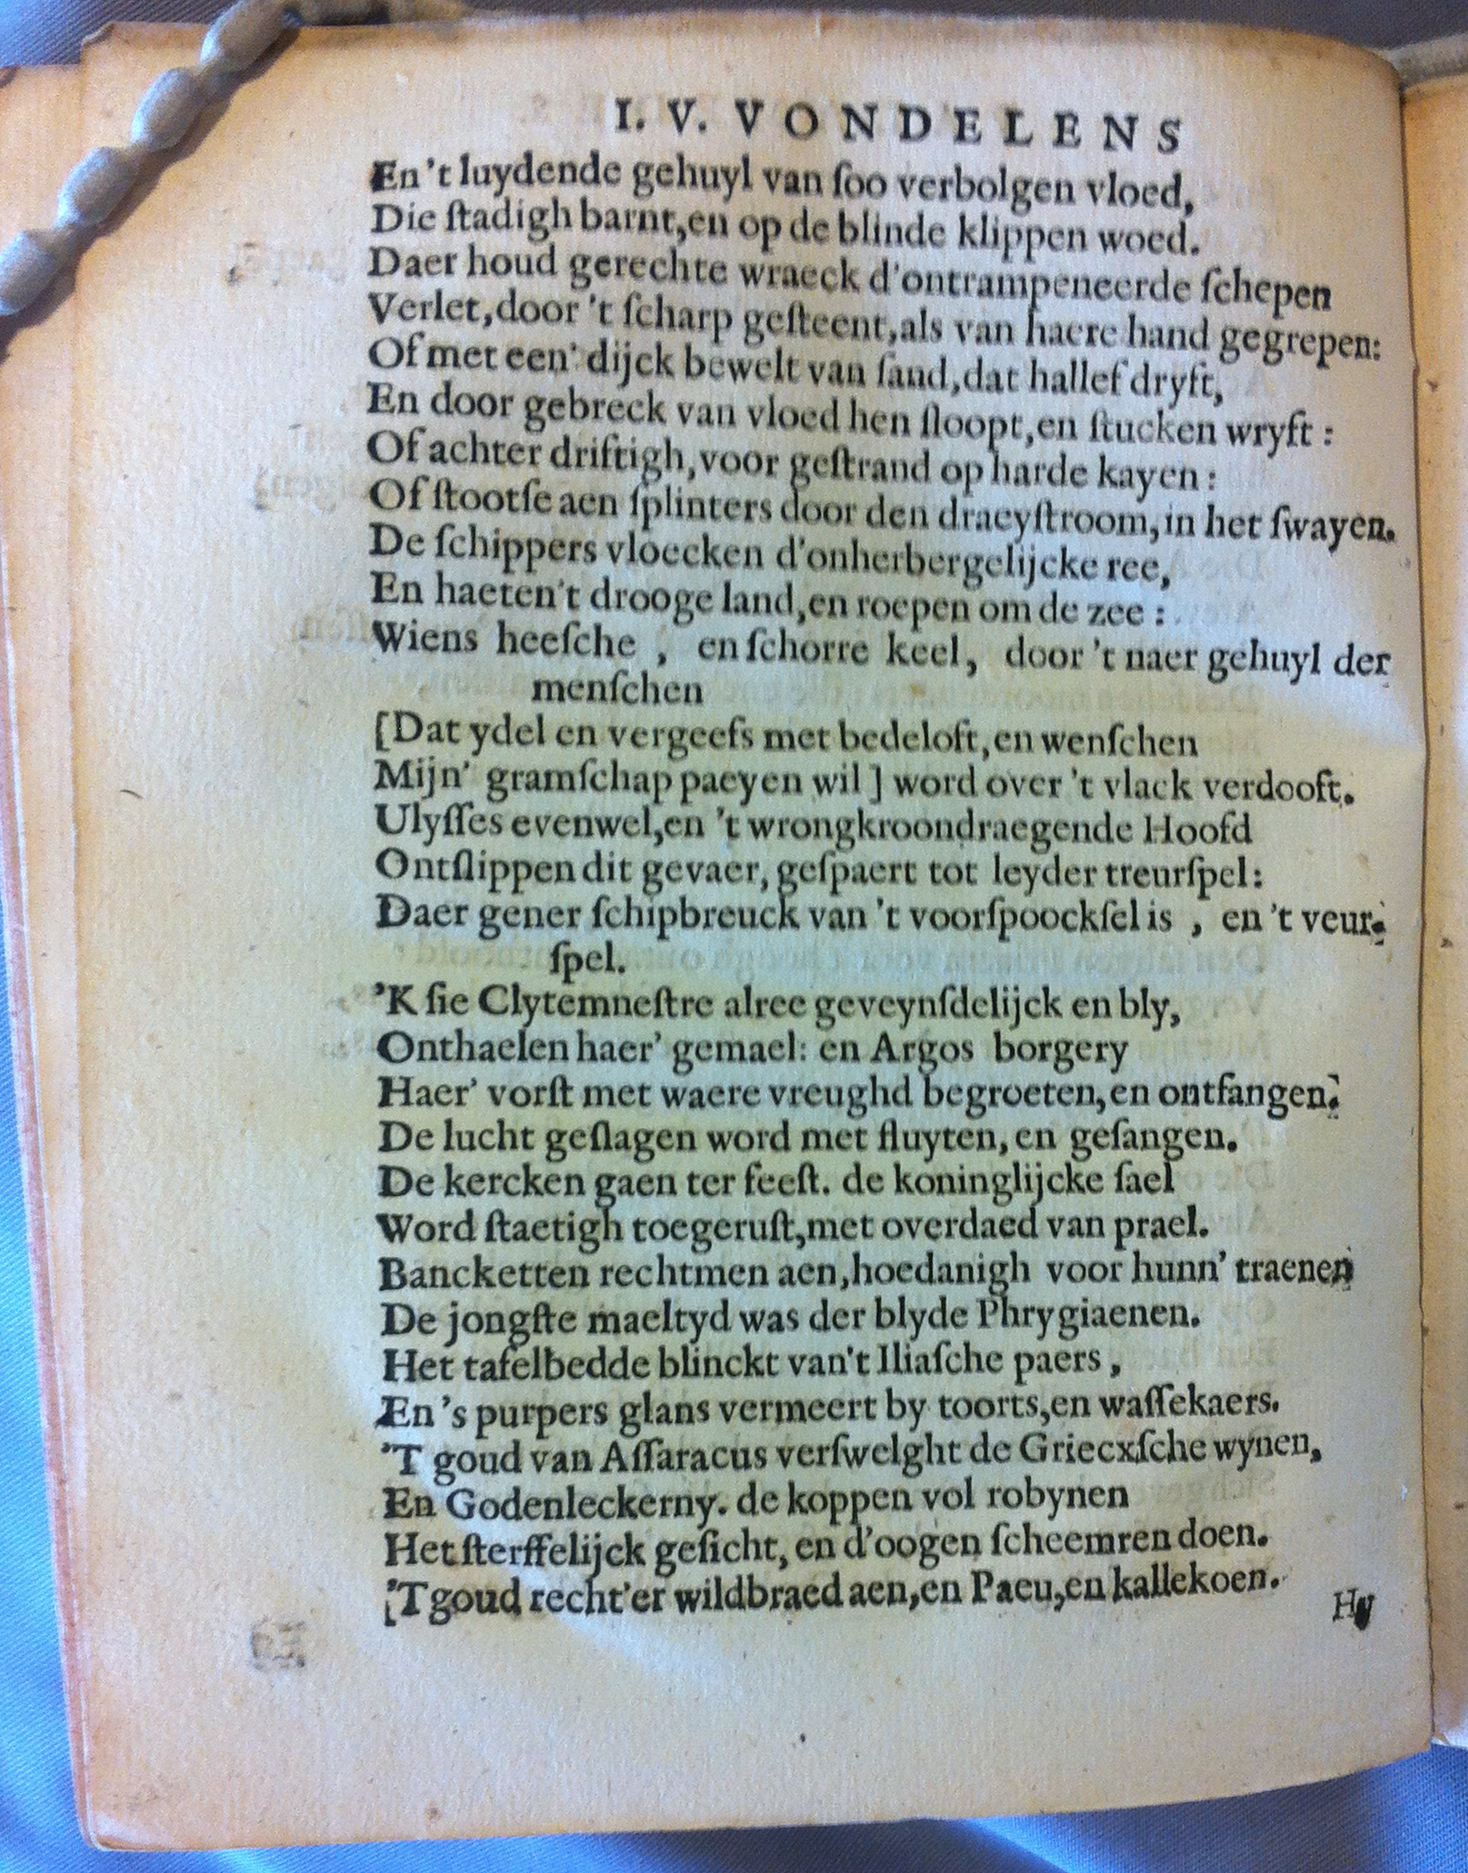 I. V. VONDELENS
En 't luydende gehuyl van ſoo verbolgen vloed,
Die ſtadigh barnt, en op de blinde klippen woed.
Daer houd gerechte wraeck d'ontrampeneerde ſchepen
Verlet, door 't ſcharp geſteent, als van haere hand gegrepen:
Of met een' dijck bewelt van ſand, dat hallef dryft,
En door gebreck van vloed hen ſloopt, en ſtucken wryft:
Of achter driftigh, voor geſtrand op harde kayen:
Of ſtootſe aen ſplinters door den draeyſtroom, in het ſwayen.
De ſchippers vloecken d'onherbergelijcke ree,
En haeten't drooge land, en roepen om de zee:
Wiens heeſche, en ſchorre keel, door 't naer gehuyl der
menſchen
[Dat ydel en vergeefs met bedeloft, en wenſchen
Mijn' gramſchap paeyen wil] word over 't vlack verdooft.
Ulyſſes evenwel, en 't wrongkroondraegende Hoofd
Ontſlippen dit gevaer, geſpaert tot leyder treurſpel:
Daer gener ſchipbreuck van 't voorſpoockſel is, en 't veur-
ſpel.
'K ſie Clytemneſtre alree geveynſdelijck en bly,
Onthaelen haer' gemael: en Argos borgery
Haer' vorſt met waere vreughd begroeten, en ontfangen.
De lucht geſlagen word met fluyten, en geſangen.
De kercken gaen ter feeſt. de koninglijcke ſael
Word ſtaetigh toegeruſt, met overdaed van prael.
Bancketten rechtmen aen, hoedanigh voor hunn' traenen
De jongſte maeltyd was der blyde Phrygiaenen.
Het tafelbedde blinckt van't Iliaſche paers,
En 's purpers glans vermeert by toorts, en waſſekaers.
'T goud van Aſſaracus verſwelght de Griecxſche wynen,
En Godenleckerny. de koppen vol robynen
Het ſterffelijck geſicht, en d'oogen ſcheemren doen.
'T goud recht'er wildbraed aen, en Paeu, en kallekoen.
Hy